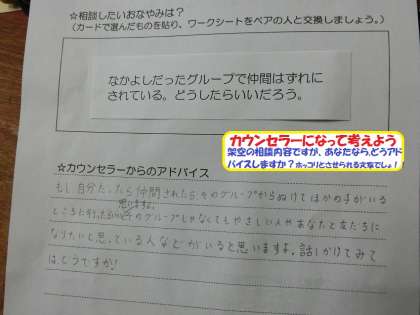 ☆相談したいおなやみは?
(カードで選んだものを貼り、ワークシートをペアの人と交換しましょう。)
なかよしだったグループで仲間はずれに
されている。どうしたらいいだろう。
カウンセラーになって考えよう
架空の相談内容ですが、あなたなら、どうアド
バイスしますか?ホッコリとさせられる文章でしょ!
☆カウンセラーからのアドバイス
もし自分だったら仲間はずれされたらそのグループからぬけてほかの子がいる
ところに行ったり
思いますよ。
のグループじゃなくてもやさしい人やあなたと友だちに
なりたいと思っている人などがいると思いますよ。話しかけてみて
はどうですか!